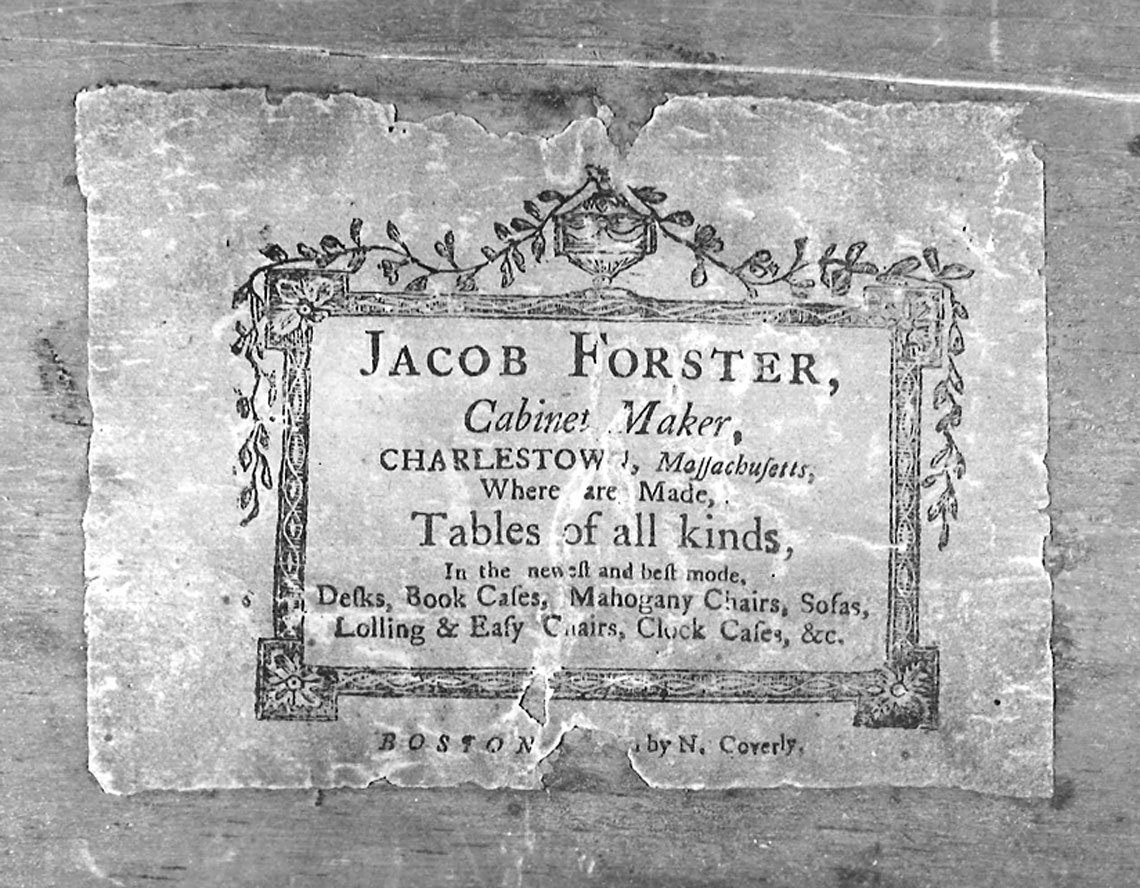 JACOB FORSTER,
Cabinet Maker,
CHARLESTOWN, Maſſachuſetts,
Where are Made,
Tables of all kinds,
In the neweſt and beſt mode,
Deſks, Book Caſes, Mahogany Chairs, Sofas,
Lolling & Eaſy Chairs, Clock Caſes, &c.
BOSTON by N. Coverly.